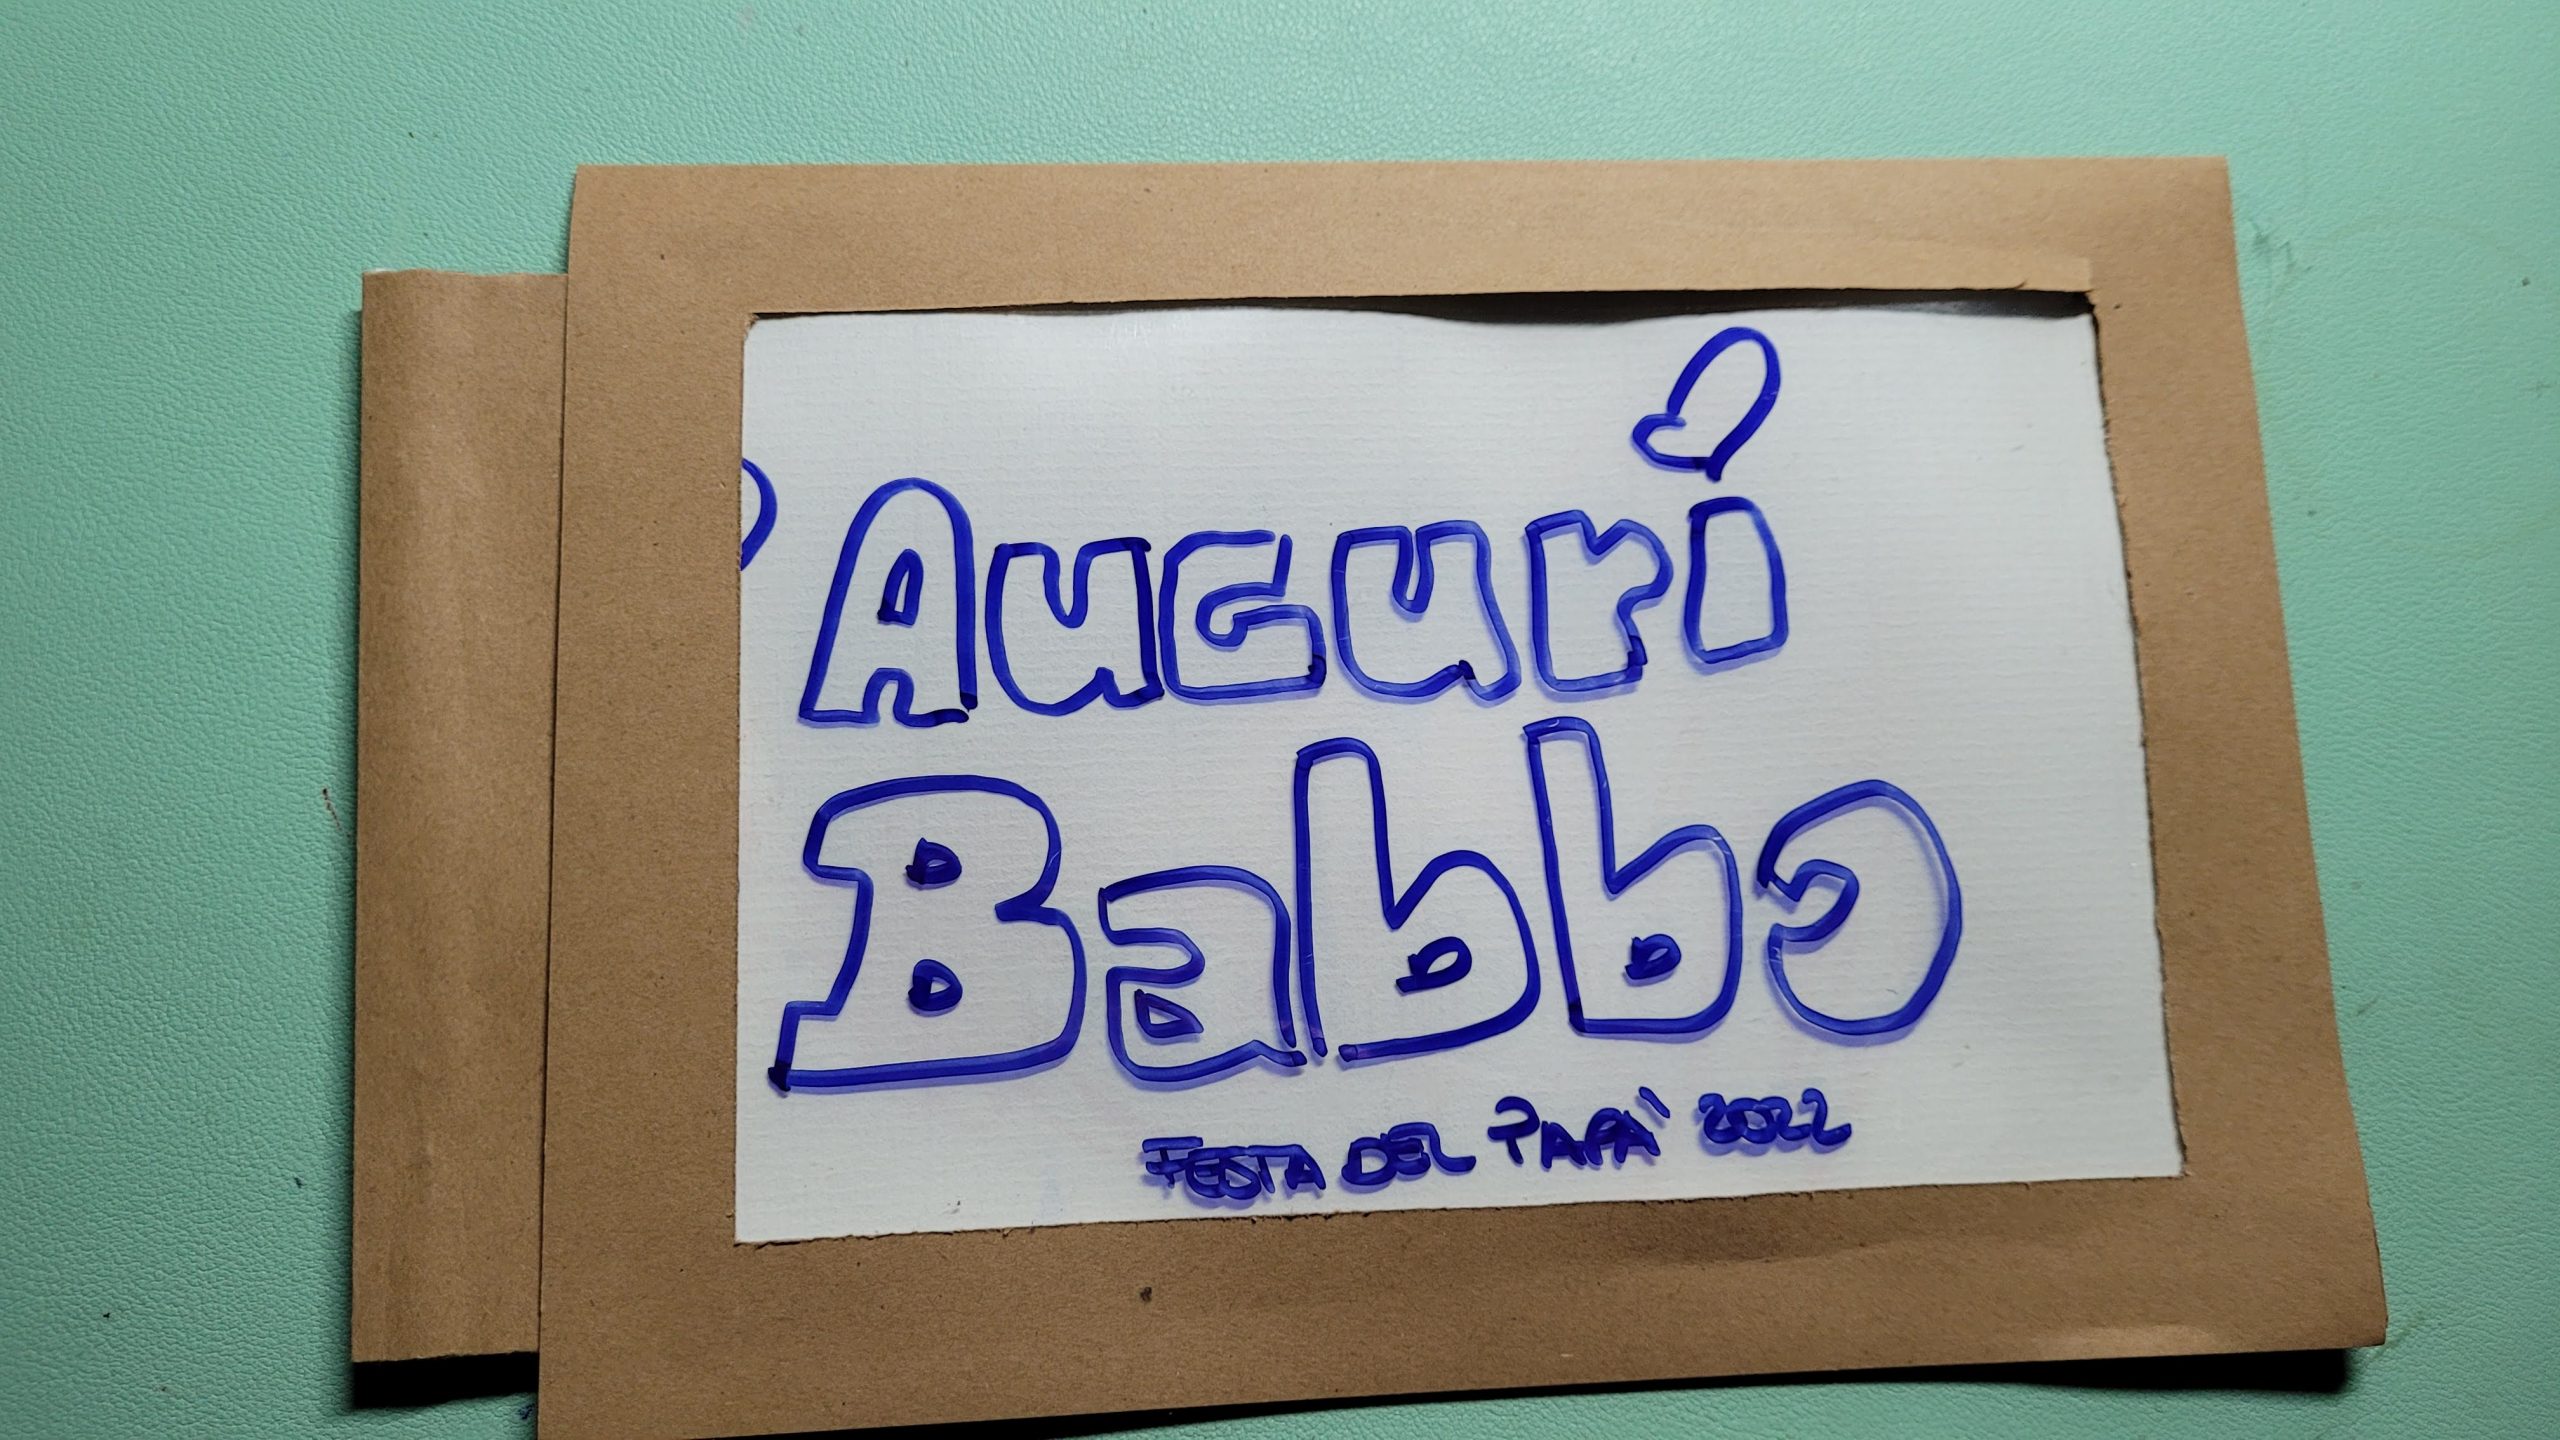 Auguri
Babbo
FESTA DEL PAPÀ 2022